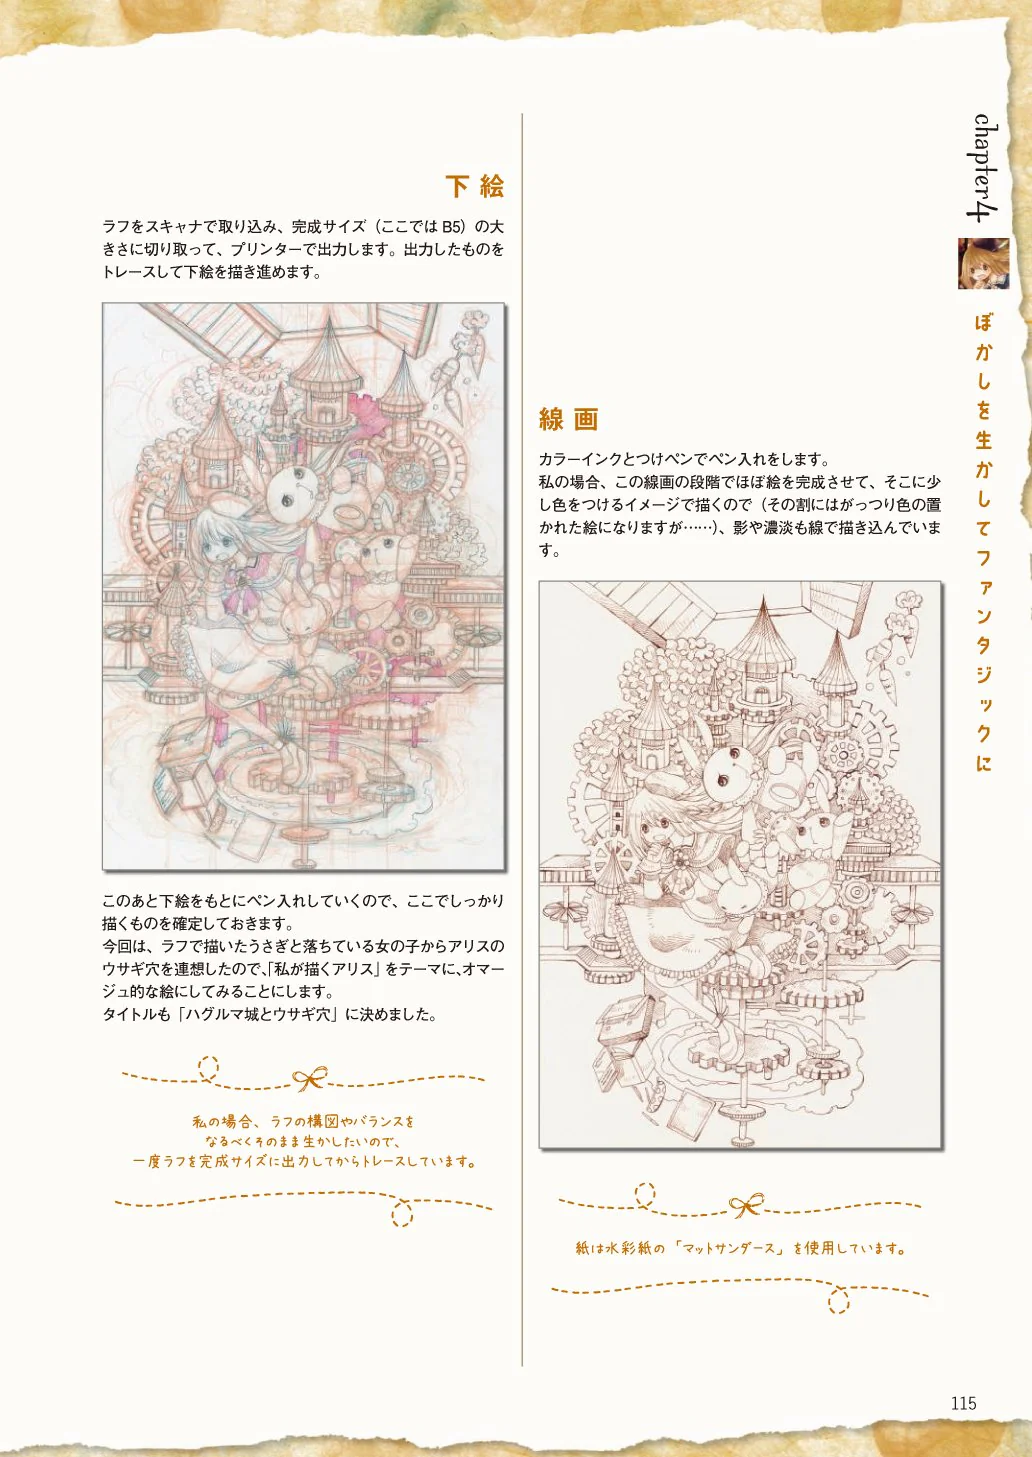 chapter4
ぼかしを生かしてファンタジックに
下絵
ラフをスキャナで取り込み、完成サイズ（ここでは B5）の大
きさに切り取って、プリンターで出力します。出力したものを
トレースして下絵を描き進めます。
このあと下絵をもとにペン入れしていくので、ここでしっかり
描くものを確定しておきます。
今回は、ラフで描いたうさぎと落ちている女の子からアリスの
ウサギ穴を連想したので、「私が描くアリス」をテーマに、オマー
ジュ的な絵にしてみることにします。
タイトルも「ハグルマ城とウサギ穴」に決めました。
私の場合、ラフの構図やバランスを
なるべくそのまま生かしたいので、
一度ラフを完成サイズに出力してからトレースしています。
線画
カラーインクとつけペンでペン入れをします。
私の場合、この線画の段階でほぼ絵を完成させて、そこに少
し色をつけるイメージで描くので（その割にはがっつり色の置
かれた絵になりますが……）、影や濃淡も線で描き込んでいま
す。
紙は水彩紙の「マットサンダース」を使用しています。
115